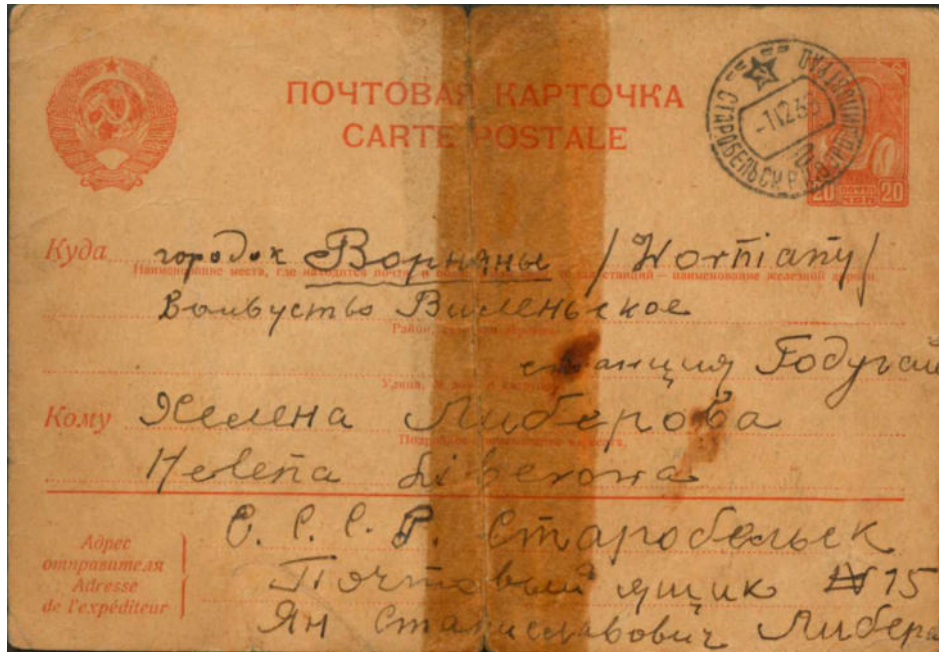 ПОЧТОВАЯ КАРТОЧКА
CARTE POSTALE
СТАРОБЕЛЬСК
20 ПОЧТА 20
Куда городок Ворняны /Worniany/
Наименование места, где находится почта, и
наименование железной дороги.
Вольвуство Виленьское
Район
станция Годугай
Улица, №
Кому Хелена Либерова
Подробное наименование адресата.
Helena Liberowa
Адрес
отправителя
Adresse
de l'expéditeur
С.С.С.Р. Старобельск
Почтовый ящик N 15
Ян Станиславович Либера